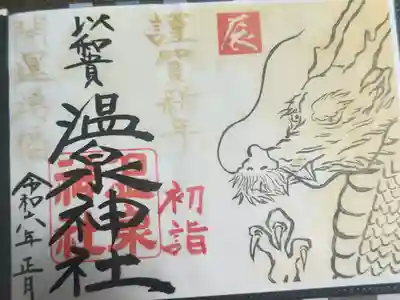 辰
謹賀新年
初詣
以和貴
温泉神社
温泉
神社
開運
令和八年 正月